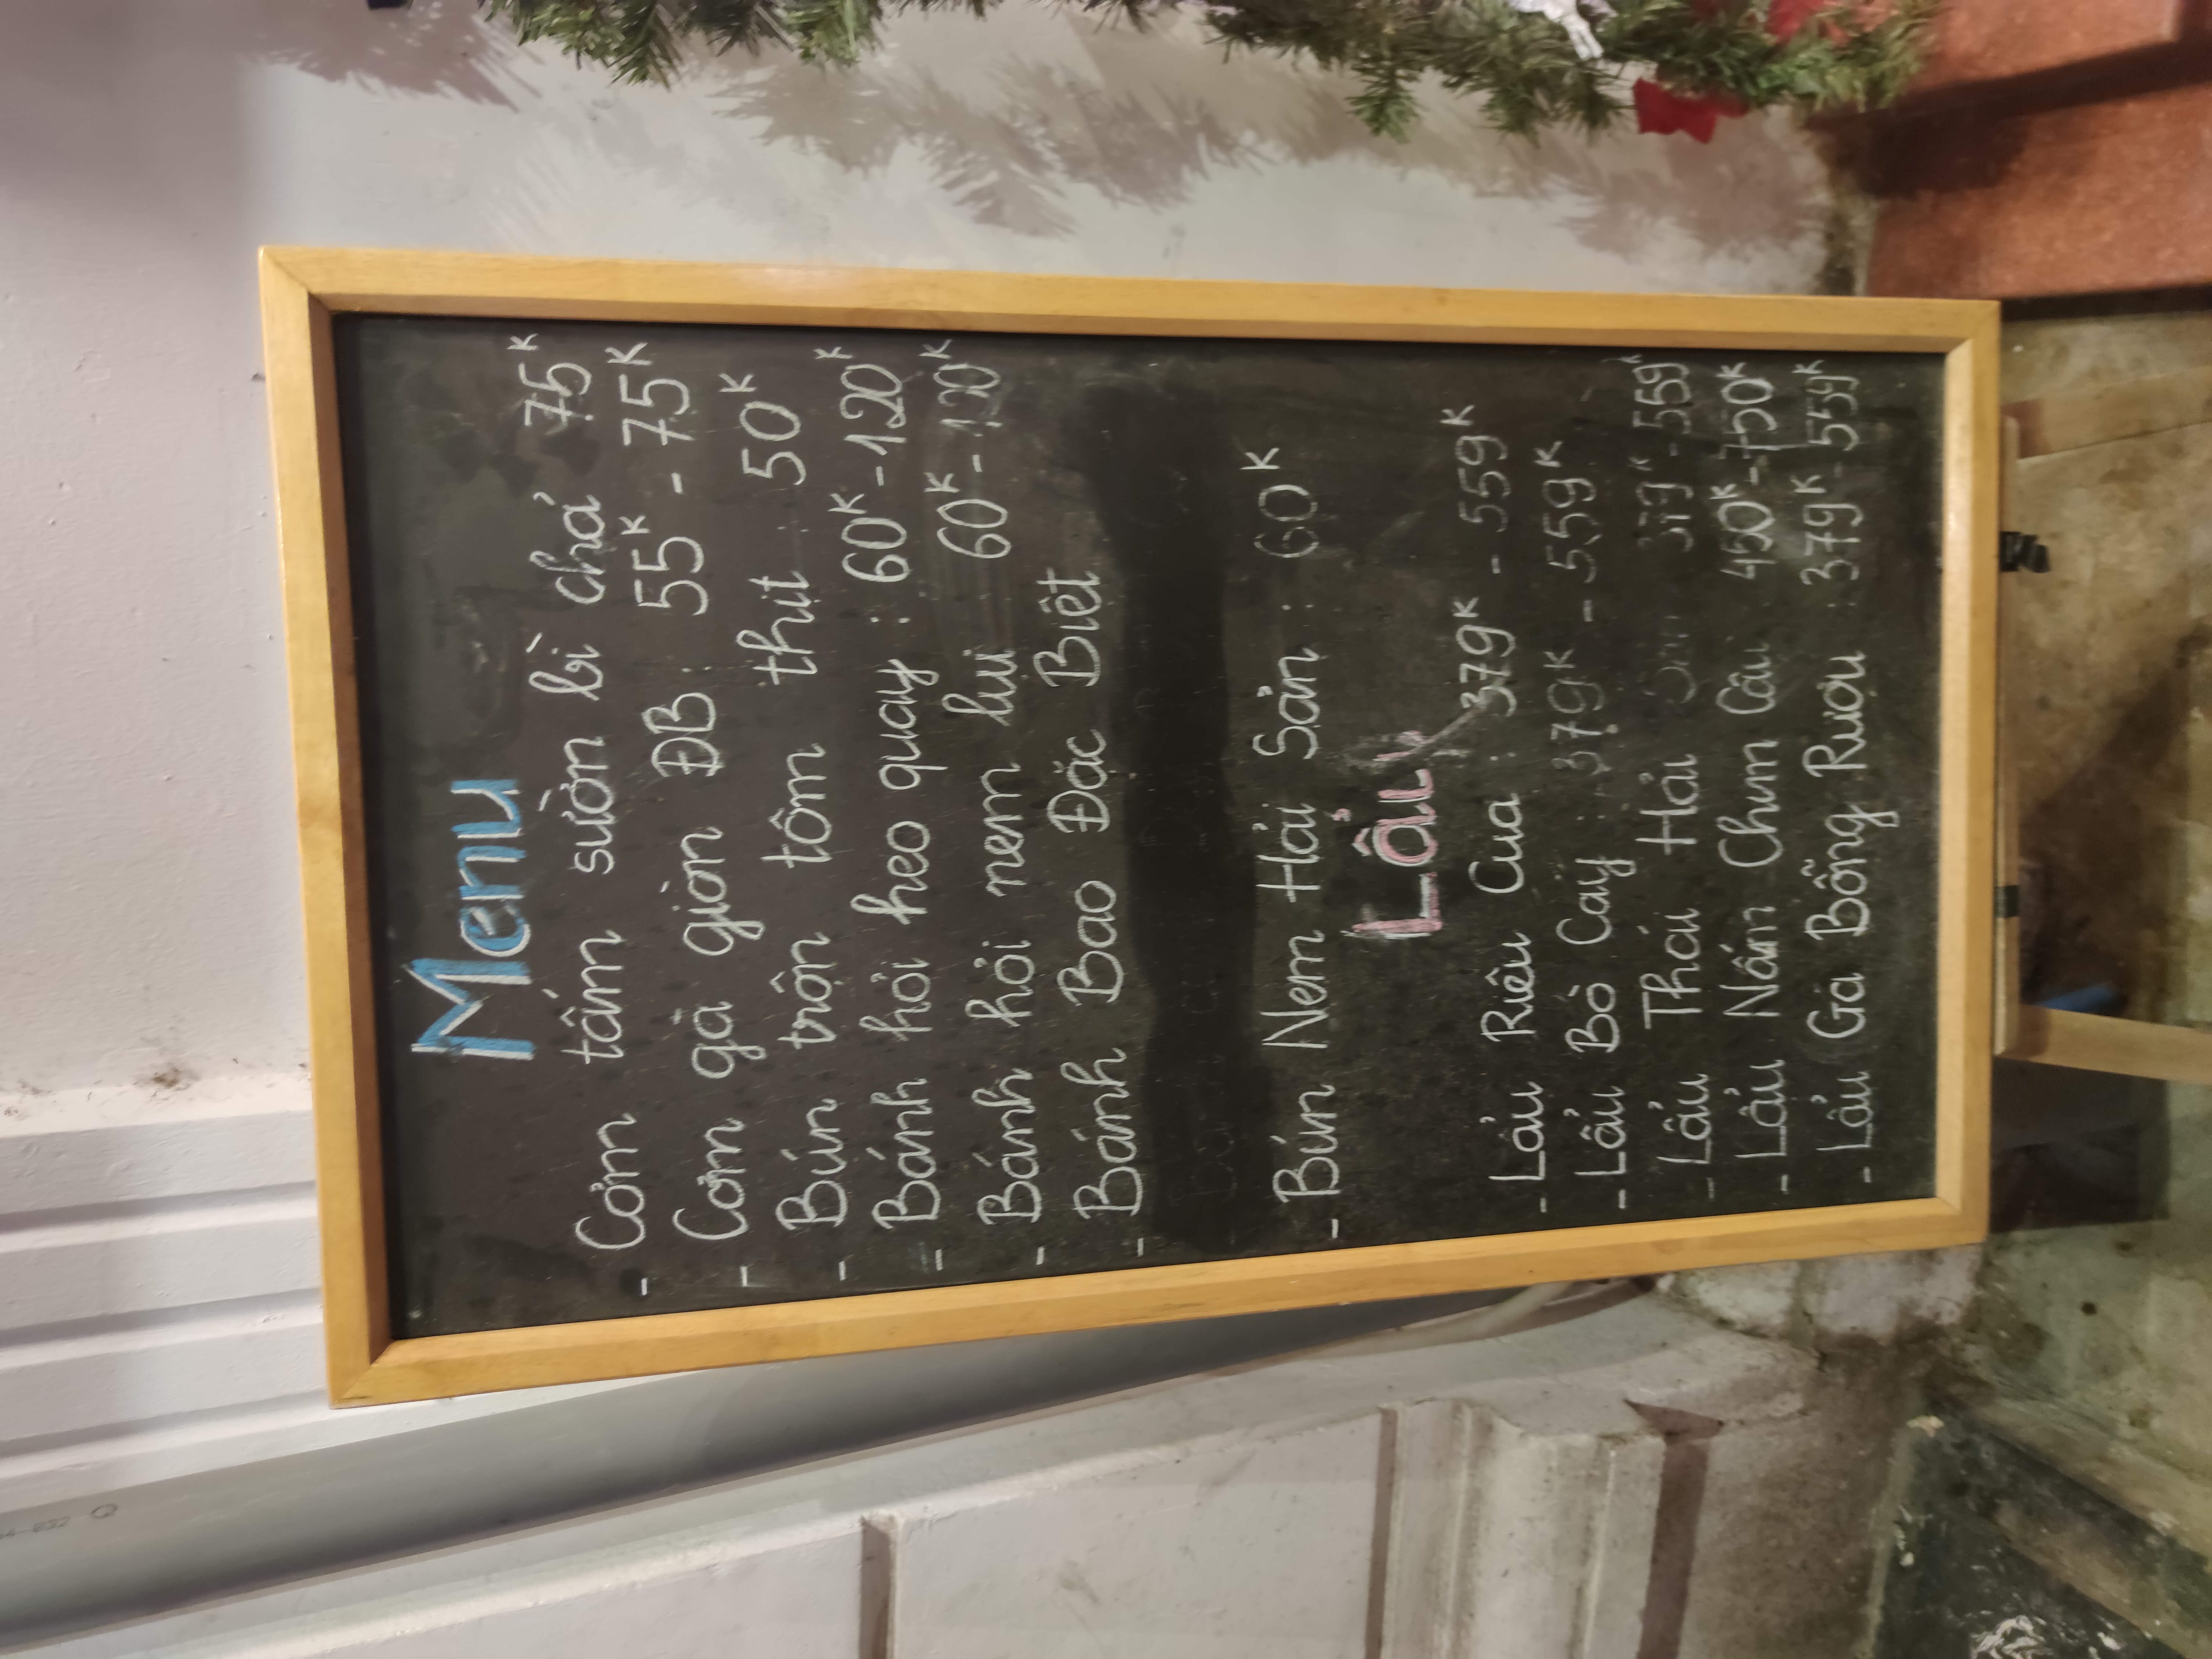 Menu
- Cơm tấm sườn bì chả 75K
- Cơm gà giòn ĐB: 55K - 75K
- Bún trộn tôm thịt 50K
- Bánh hỏi heo quay: 60K-120K
- Bánh hỏi nem lụi 60K-120K
- Bánh Bao Đặc Biệt
- Bún Nem Hải Sản: 60K
Lẩu
- Lẩu Riêu Cua: 379K - 559K
- Lẩu Bò Cay: 379K - 559K
- Lẩu Thái Hải 379K-559K
- Lẩu Nấm Chim Câu 450K-750K
- Lẩu Gà Bỗng Rượu: 379K-559K